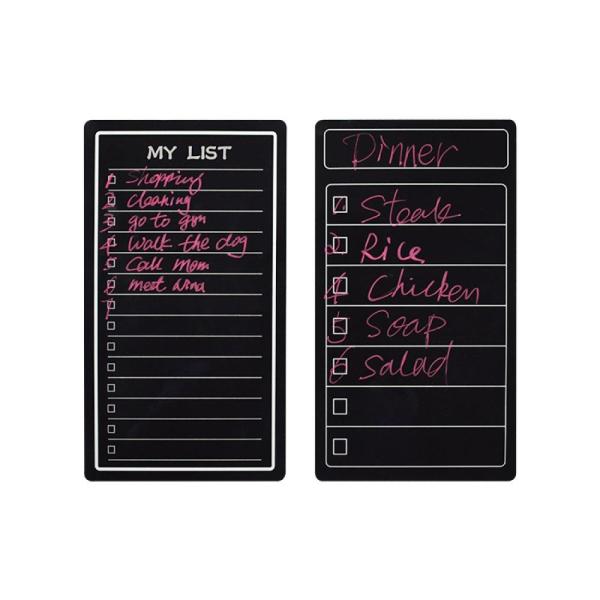 MY LIST
1 Shopping
2 cleaning
3 go to gym
4 Walk the dog
5 Call mom
6 meet nina
7
Dinner
1. Steak
2 Rice
4 Chicken
5 Soap
6 Salad